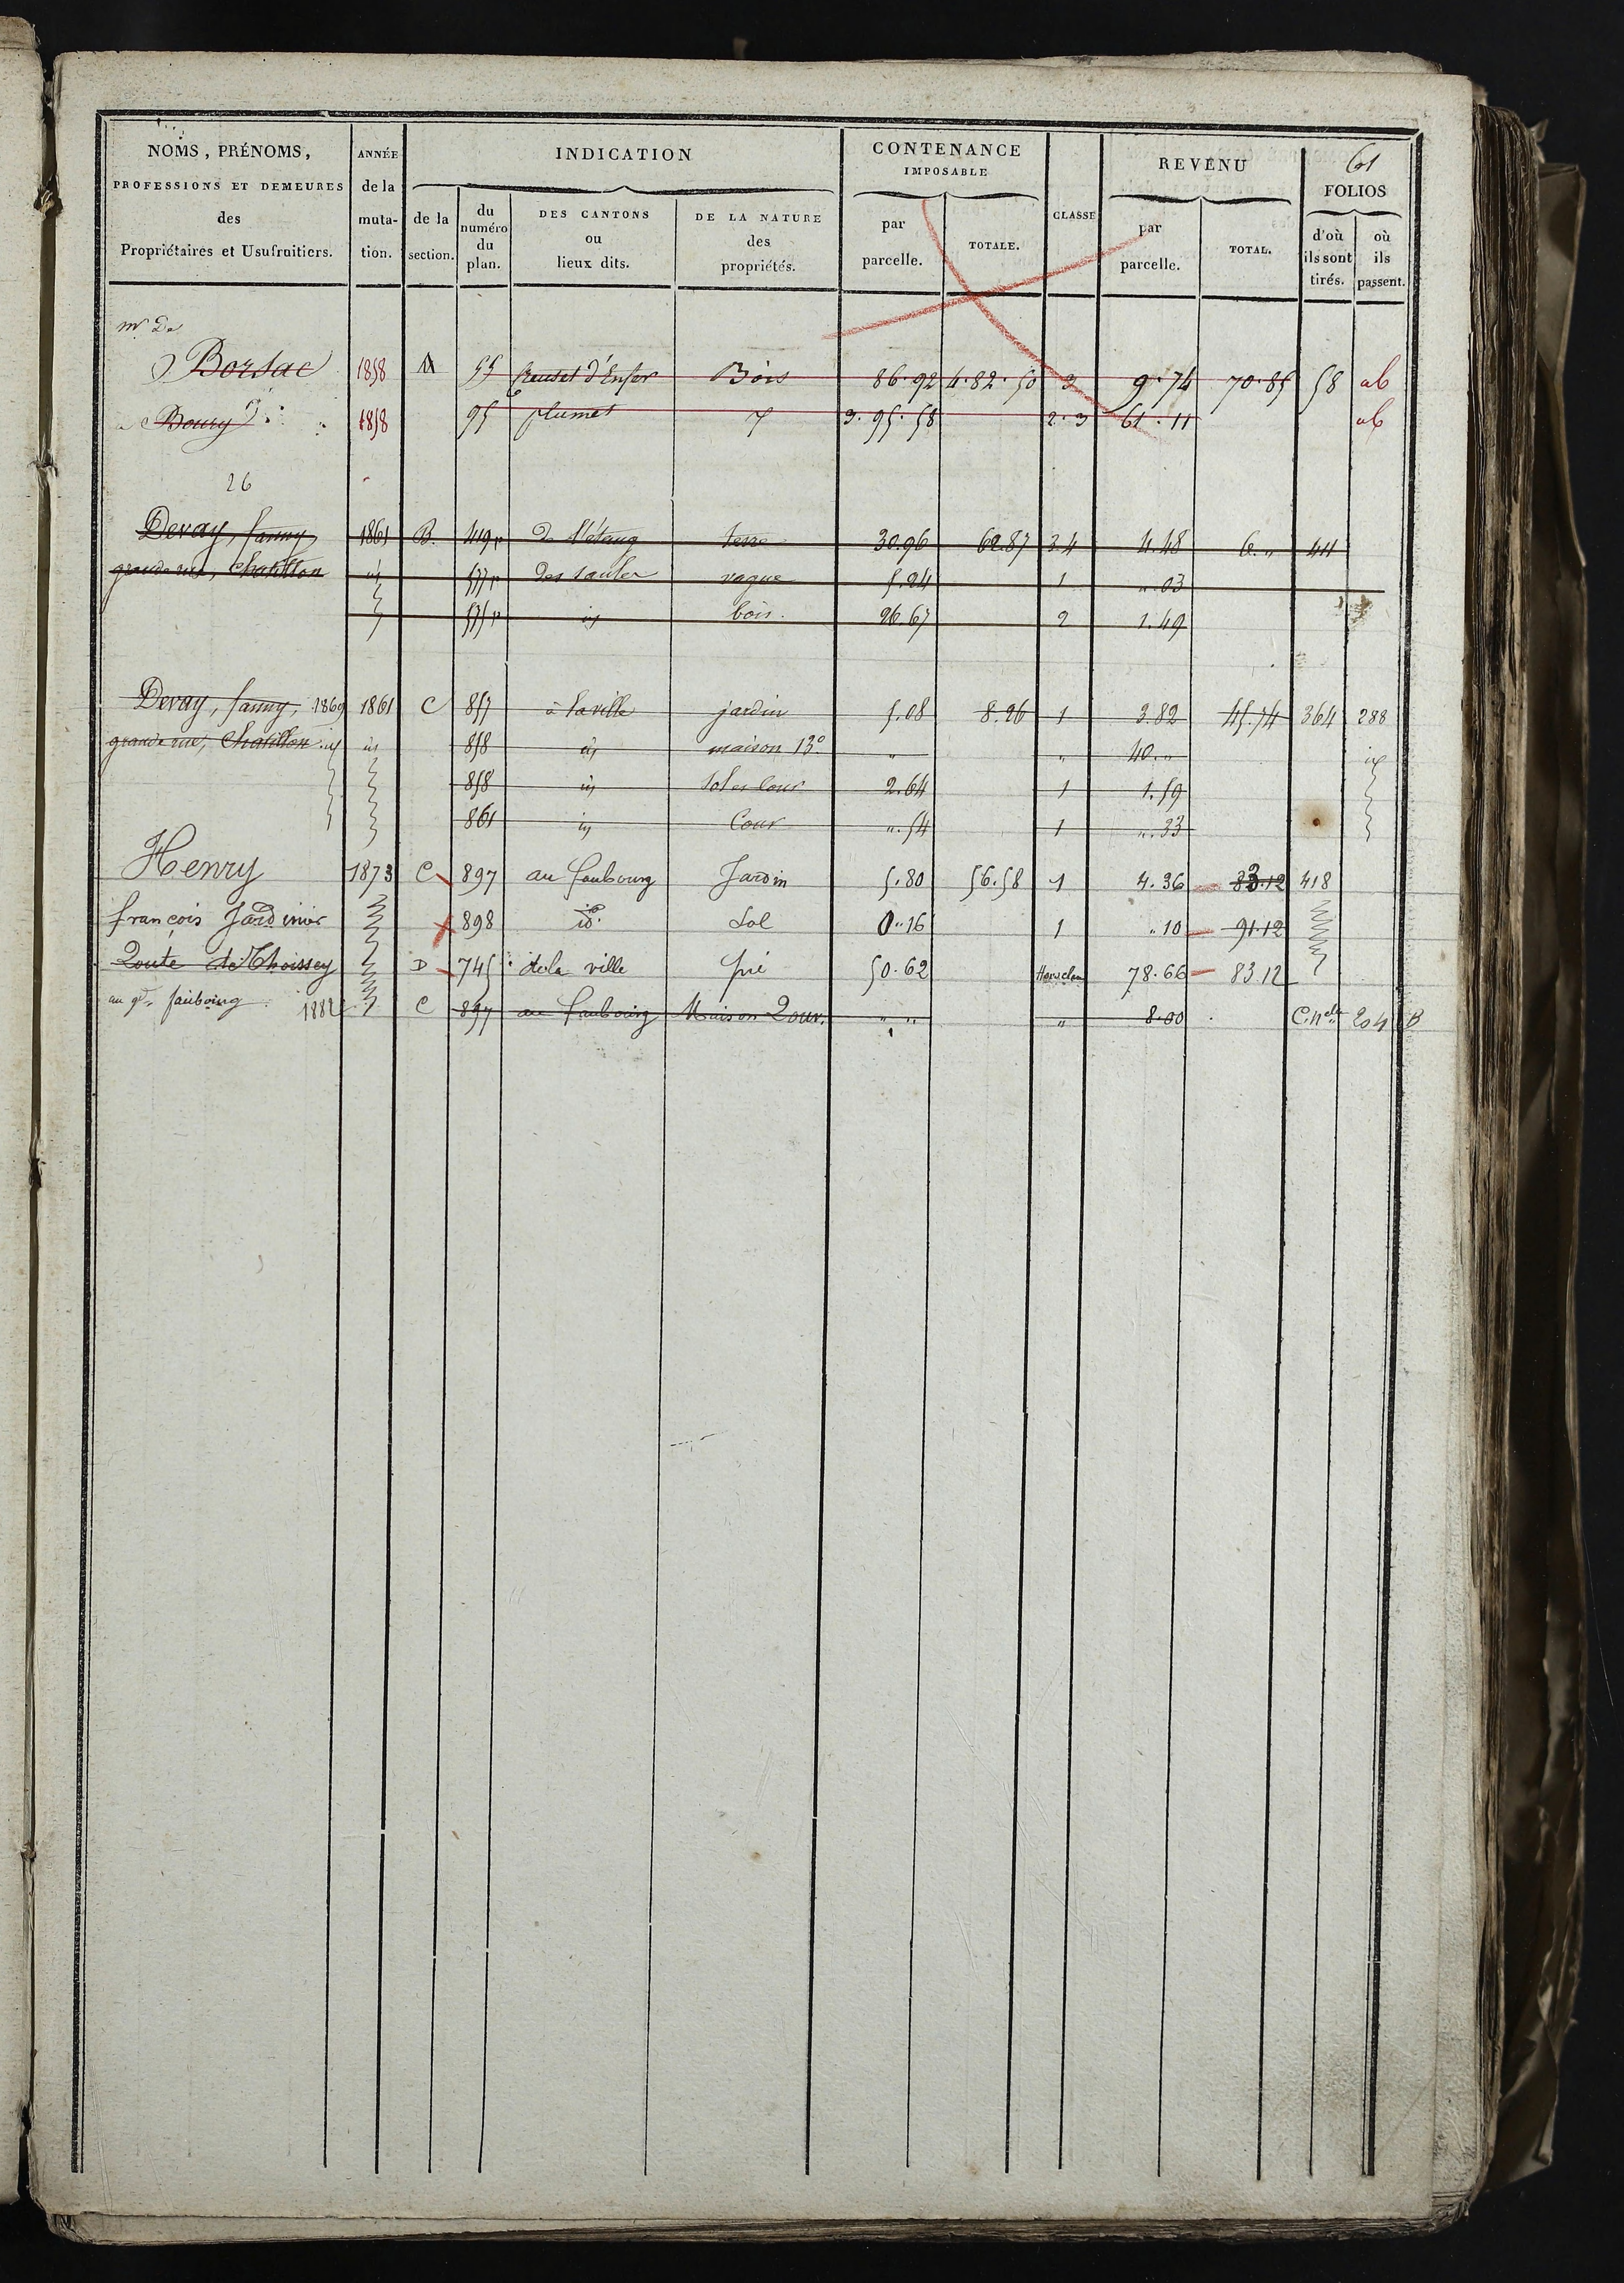 61
NOMS, PRÉNOMS, PROFESSIONS ET DEMEURES des Propriétaires et Usufruitiers.
ANNÉE de la mutation.
INDICATION
de la section.
du numéro du plan.
DES CANTONS ou lieux dits.
DE LA NATURE des propriétés.
CONTENANCE IMPOSABLE
par parcelle.
TOTALE.
CLASSE
REVENU
par parcelle.
TOTAL.
FOLIOS
d'où ils sont tirés.
où ils passent.
mr De
Borsac 1858 55 Creuset d'Enfer Bois 86.92 4.82.50 3 9.74 70.85 58 ab
Boury 1858 95 plumet 3.95.58 2.3 61.11 ab
26
Devay, fanny, 1861 B. 419p De l'étang terre 30.96 62.87 3.4 4.48 6.,, 44
grande rue, Chatillon id 577p Des saules vague 5.24 1 ,,.03
575p id bois. 26.67 2 1.49
Devay, fanny, 1869 1861 C 857 à la ville jardin 5.08 8.26 1 3.82 45.74 364 288
grande rue, Chatillon id id 858 id maison 13e ,, ,, 40.,, id
858 id Sol et Cour 2.64 1 1.59
861 id Cour ,,.54 1 ,,.33
Henry 1873 C 897 au faubourg Jardin 5.80 56.58 1 4.36 83.12 418
françois Jardinier 898 id. Sol 0.,,16 1 ,,10 91.12
Route de Thoissey D 745 de la ville pré 50.62 78.66 83.12
au gd. faubourg 1882 C 897 au faubourg Maison ,, ,, ,, 8.00 C.nelle 204 B